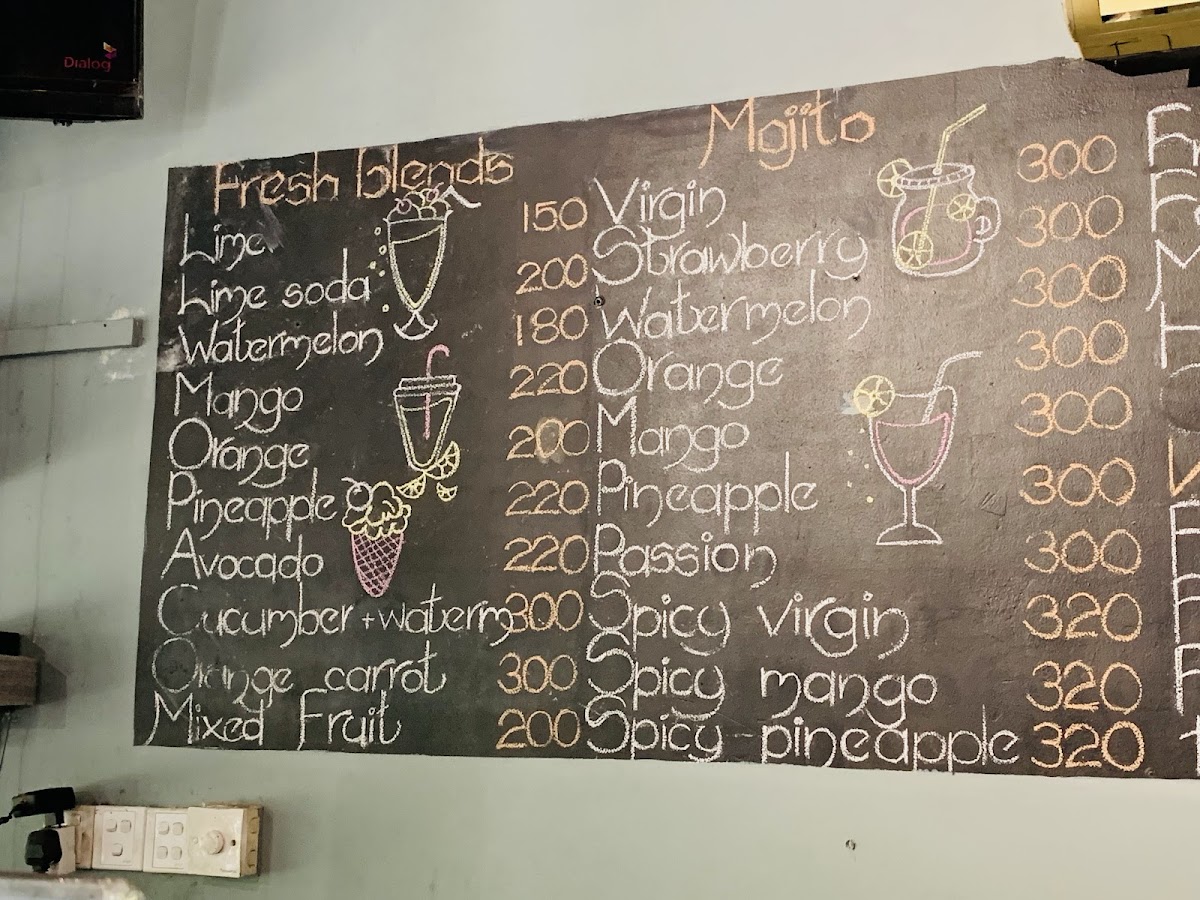 Dialog
Fresh blends
Lime 150
Lime soda 200
Watermelon 180
Mango 220
Orange 200
Pineapple 220
Avocado 220
Cucumber + waterm 300
Orange carrot 300
Mixed Fruit 200
Mojito
Virgin 300
Strawberry 300
Watermelon 300
Orange 300
Mango 300
Pineapple 300
Passion 300
Spicy virgin 320
Spicy mango 320
Spicy - pineapple 320